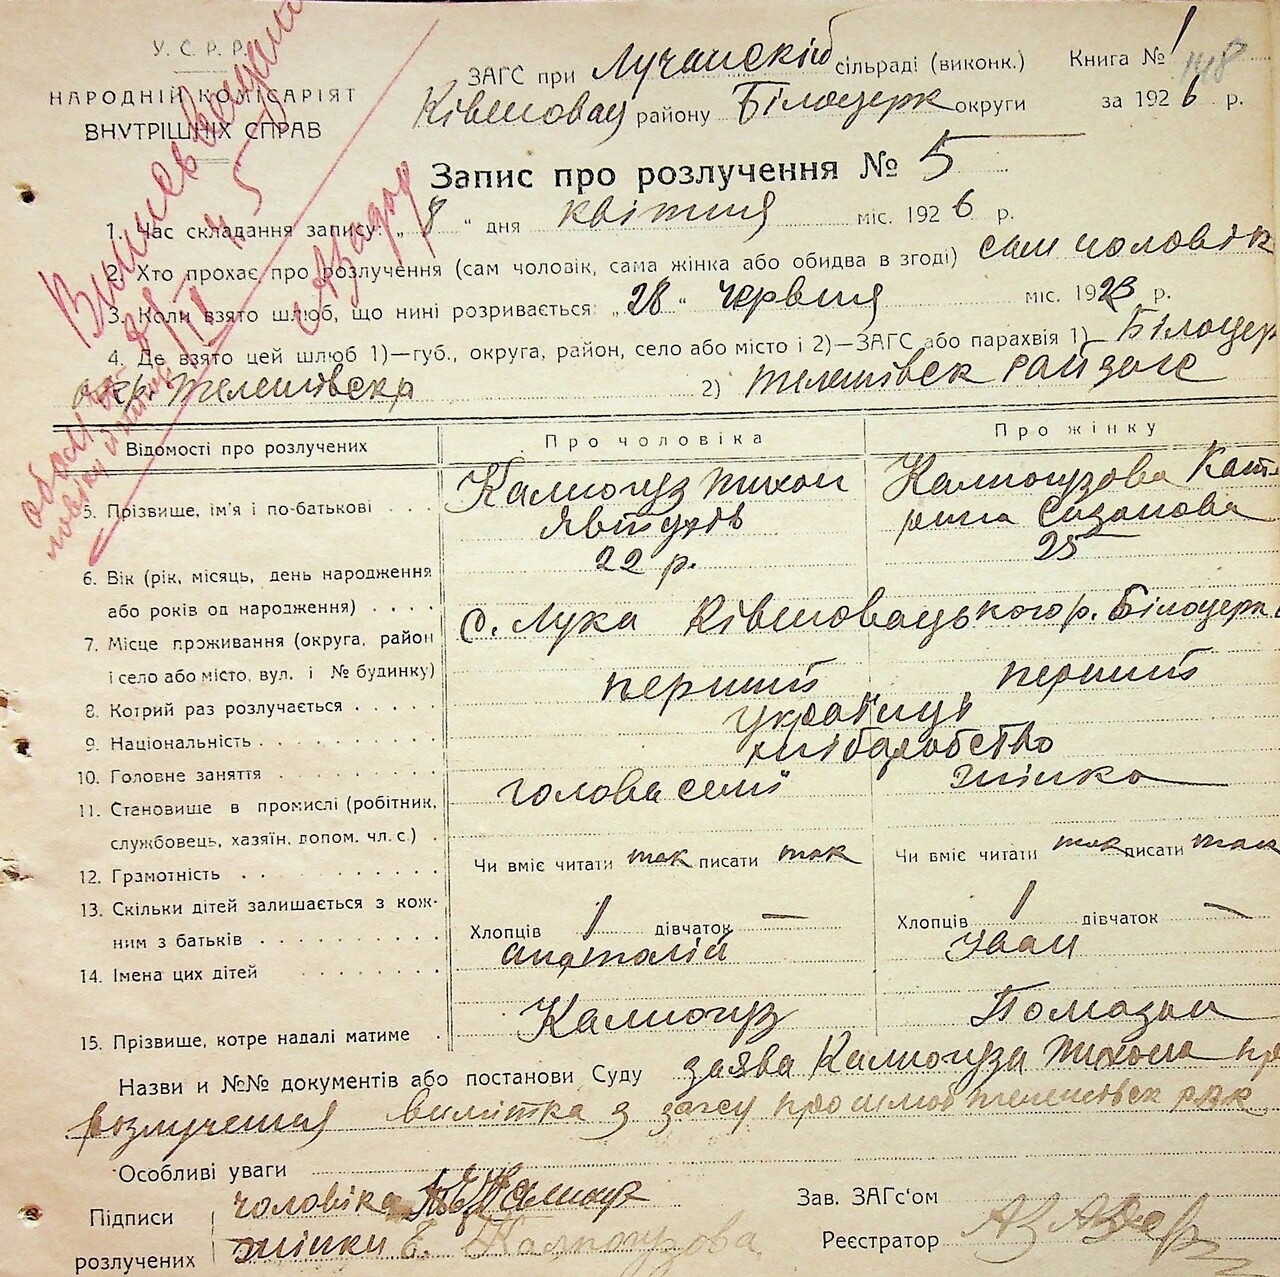 У.С.Р.Р.
НАРОДНІЙ КОМІСАРІЯТ
ВНУТРІШНІХ СПРАВ
ЗАГС при Лучанскій сільраді (виконк.) Книга № 1
148
Ківшовац району Білоцерк округи за 1926 р.
Запис про розлучення № 5
1. Час складання запису: „8" дня квітня міс. 1926 р.
2. Хто прохає про розлучення (сам чоловік, сама жінка або обидва в згоді) сам чоловік
3. Коли взято шлюб, що нині розривається: „28" червня міс. 1923 р.
4. Де взято цей шлюб 1)—губ., округа, район, село або місто і 2)—ЗАГС або парахвія 1) Білоцер
окр. Телешівска 2) Телешівск райзагс
Відомості про розлучених Про чоловіка Про жінку
5. Прізвище, ім'я і по-батькові Калногуз Тихон Явтухів Калногузова Кате рина Сазонова
6. Вік (рік, місяць, день народження або років од народження) 22 р. 25
7. Місце проживання (округа, район і село або місто, вул. і № будинку) с. Лука Ківшовацького р. Білоцерк
8. Котрий раз розлучається перший перший
9. Національність українці
10. Головне заняття хліборобство
11. Становище в промислі (робітник, службовець, хазяїн, допом. чл. с.) голова семї жінка
12. Грамотність Чи вміє читати так писати так Чи вміє читати так писати так
13. Скільки дітей залишається з кож-ним з батьків Хлопців 1 дівчаток — Хлопців 1 дівчаток —
14. Імена цих дітей Анатолій Іван
15. Прізвище, котре надалі матиме Калногуз Помазан
Назви и №№ документів або постанови Суду заява Калногуза Тихона про
розлучення витятка з загсу про шлюб Телешівск
Особливі уваги
Підписи розлучених
чоловіка Калногуз
жінки Е. Калногузова
Зав. ЗАГС'ом
Реєстратор